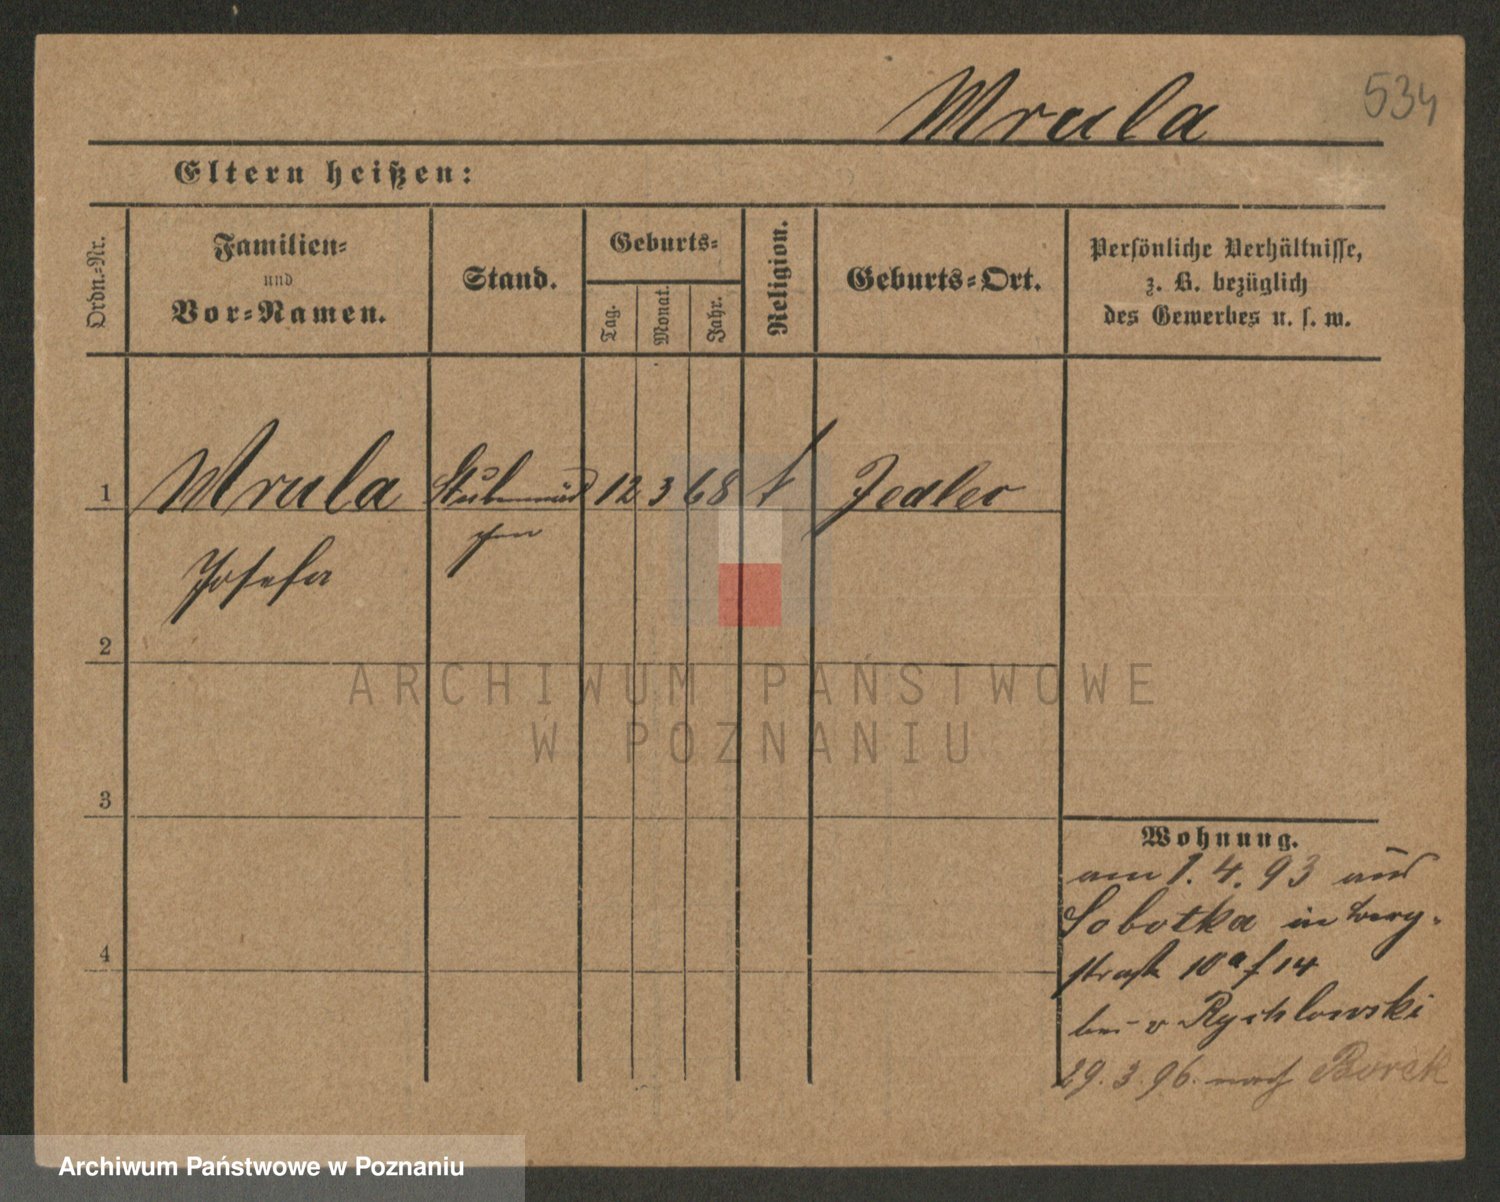 Mrula
534
Eltern heißen:
Ordn.-Nr.
Familien-
und
Vor-Namen.
Stand.
Geburts-
Tag.
Monat.
Jahr.
Religion.
Geburts-Ort.
Persönliche Verhältnisse,
z. B. bezüglich
des Gewerbes u. s. w.
1
Mrula
Stubenmäd
12
3
68
Jedlec
chen
Josefa
2
ARCHIWUM PAŃSTWOWE
W POZNANIU
3
Wohnung.
am 1. 4. 93 aus
Sobotka in Berg-
4
straße 10a f 14
bei v Rychlowski
29. 3. 96. nach Borek
Archiwum Państwowe w Poznaniu